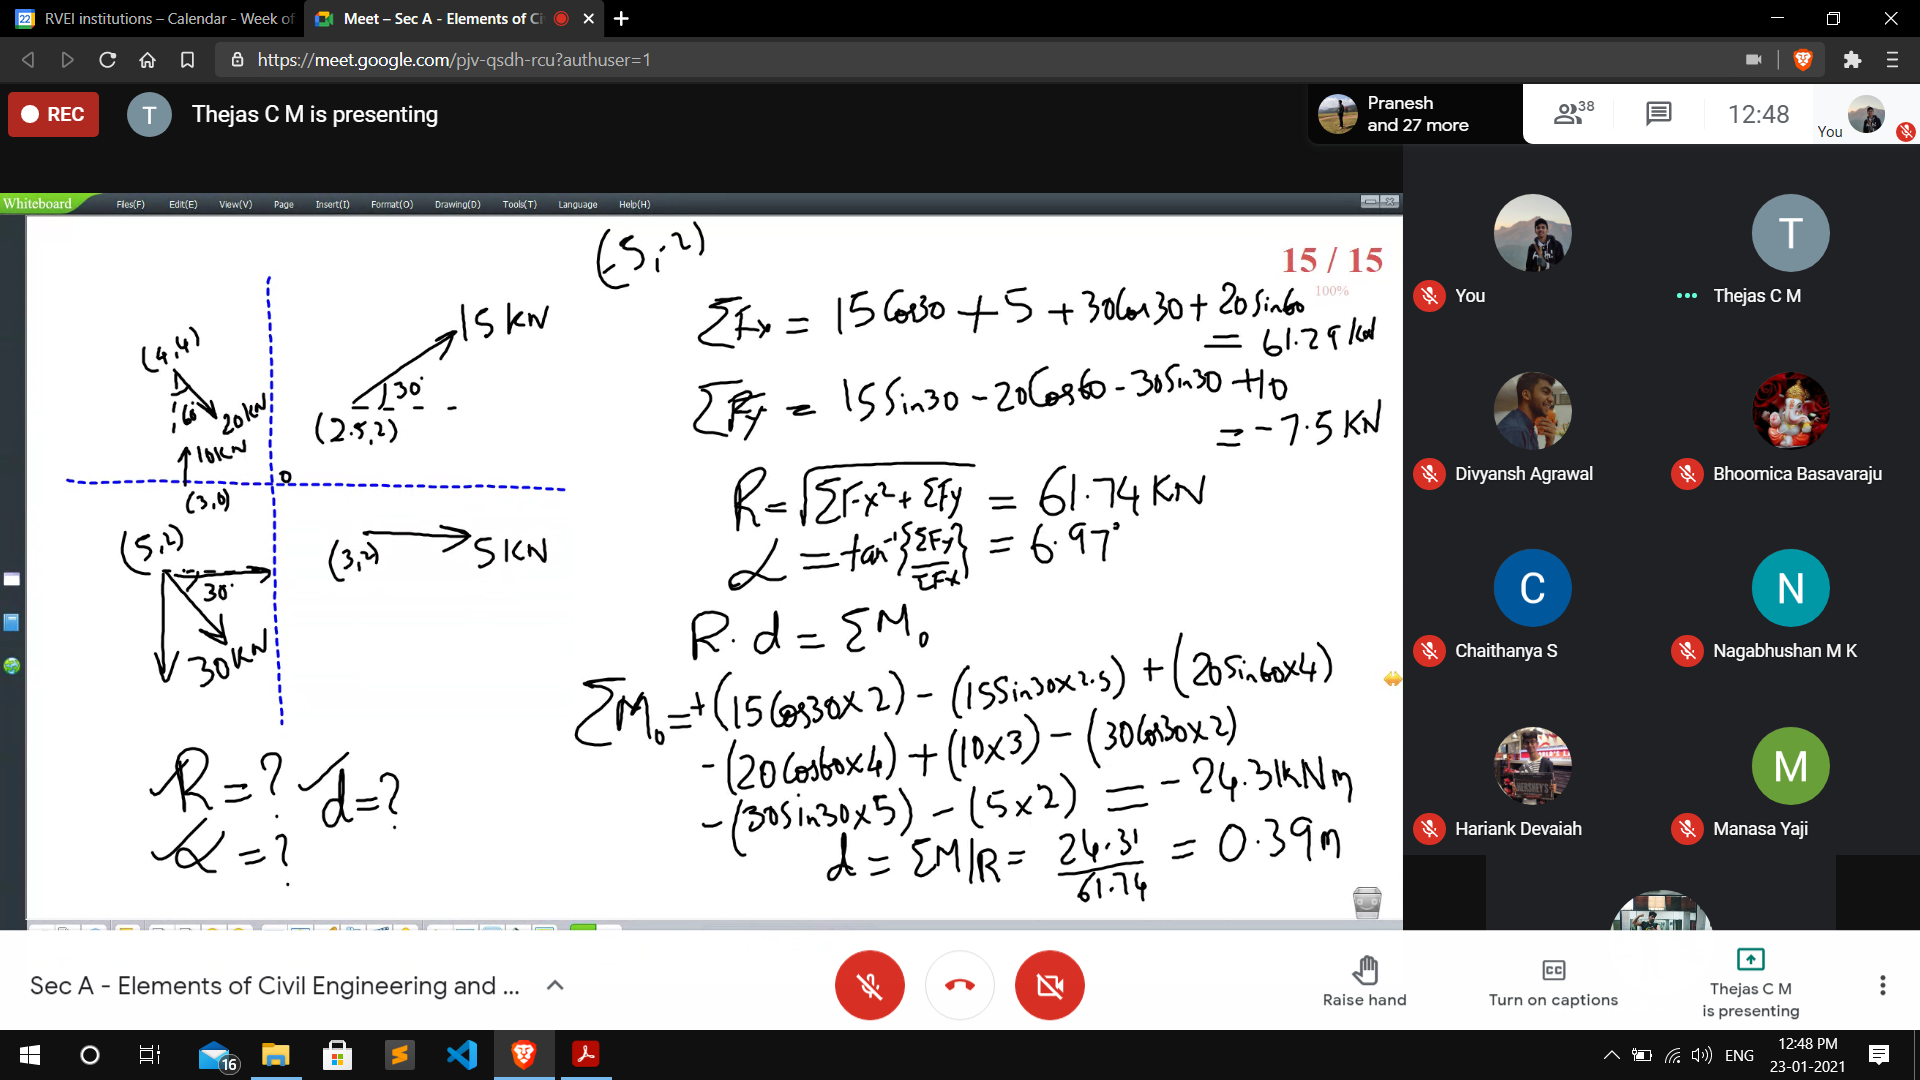 RVEI institutions – Calendar - Week of
Meet – Sec A - Elements of Ci
https://meet.google.com/pjv-qsdh-rcu?authuser=1
REC
T
Thejas C M is presenting
Pranesh
and 27 more
38
12:48
You
Whiteboard
Files(F) Edit(E) View(V) Page Insert(I) Format(O) Drawing(D) Tools(T) Language Help(H)
15 / 15
100%
(-5,-2)
(4,4)
60°
20KN
10KN
(3,0)
0
15 KN
30°
(2.5,2)
(5,2)
30°
30KN
(3,2)
5KN
R = ? d = ?
α = ?
ΣFx = 15 Cos30 + 5 + 30Cos30 + 20Sin60
= 61.29 KN
ΣFy = 15Sin30 - 20Cos60 - 30Sin30 + 10
= -7.5 KN
R = √ΣFx² + ΣFy = 61.74 KN
α = tan⁻¹{ΣFy/ΣFx} = 6.97°
R. d = ΣM₀
ΣM₀ = +(15Cos30x2) - (15Sin30x2.5) + (20Sin60x4)
- (20Cos60x4) + (10x3) - (30Cos30x2)
- (30Sin30x5) - (5x2) = -24.31KNm
d = ΣM/R = 24.31/61.74 = 0.39m
You
T
Thejas C M
Divyansh Agrawal
Bhoomica Basavaraju
C
Chaithanya S
N
Nagabhushan M K
Hariank Devaiah
M
Manasa Yaji
Sec A - Elements of Civil Engineering and ...
Raise hand
Turn on captions
Thejas C M
is presenting
16
ENG
12:48 PM
23-01-2021